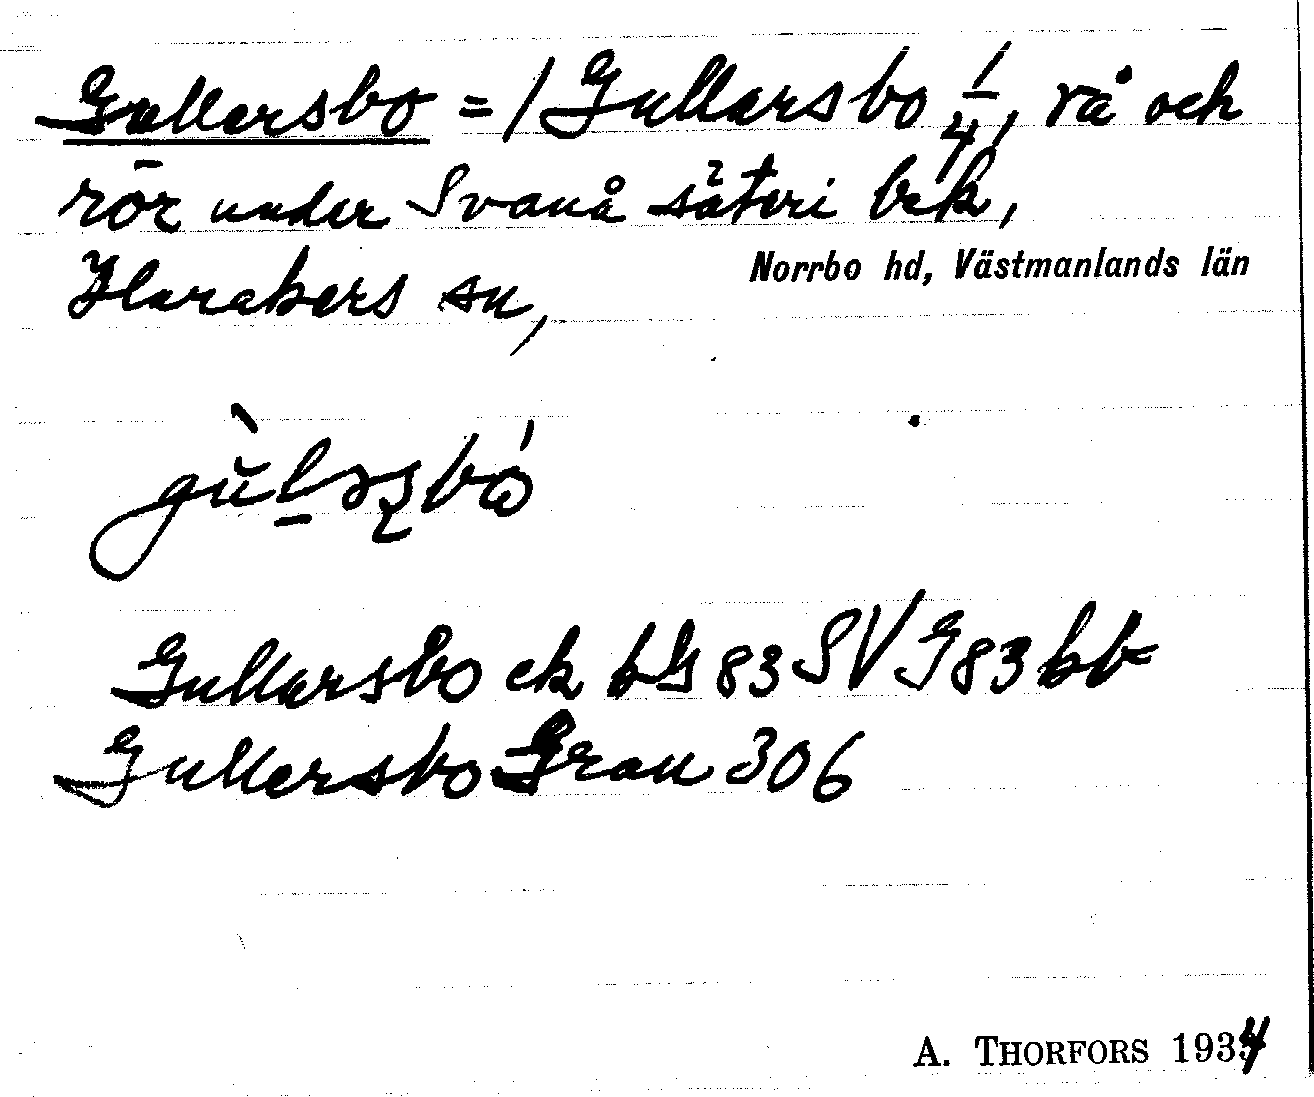 Gullersbo = / Gullarsbo 1/4, rå och
rör under Svanå säteri bsk,
Haraker sn,
Norrbo hd, Västmanlands län
Gullarsbo ek bG 83 SV G 83
Gullersbo Grau 306
A. THORFORS 1934